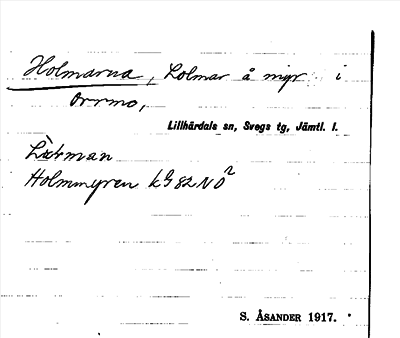 Holmarna, Lolmar å myr i
Orrmo,
Lillhärdals sn, Svegs tg, Jämtl. l.
Holmmyren kG 82 NO²
S. ÅSANDER 1917.